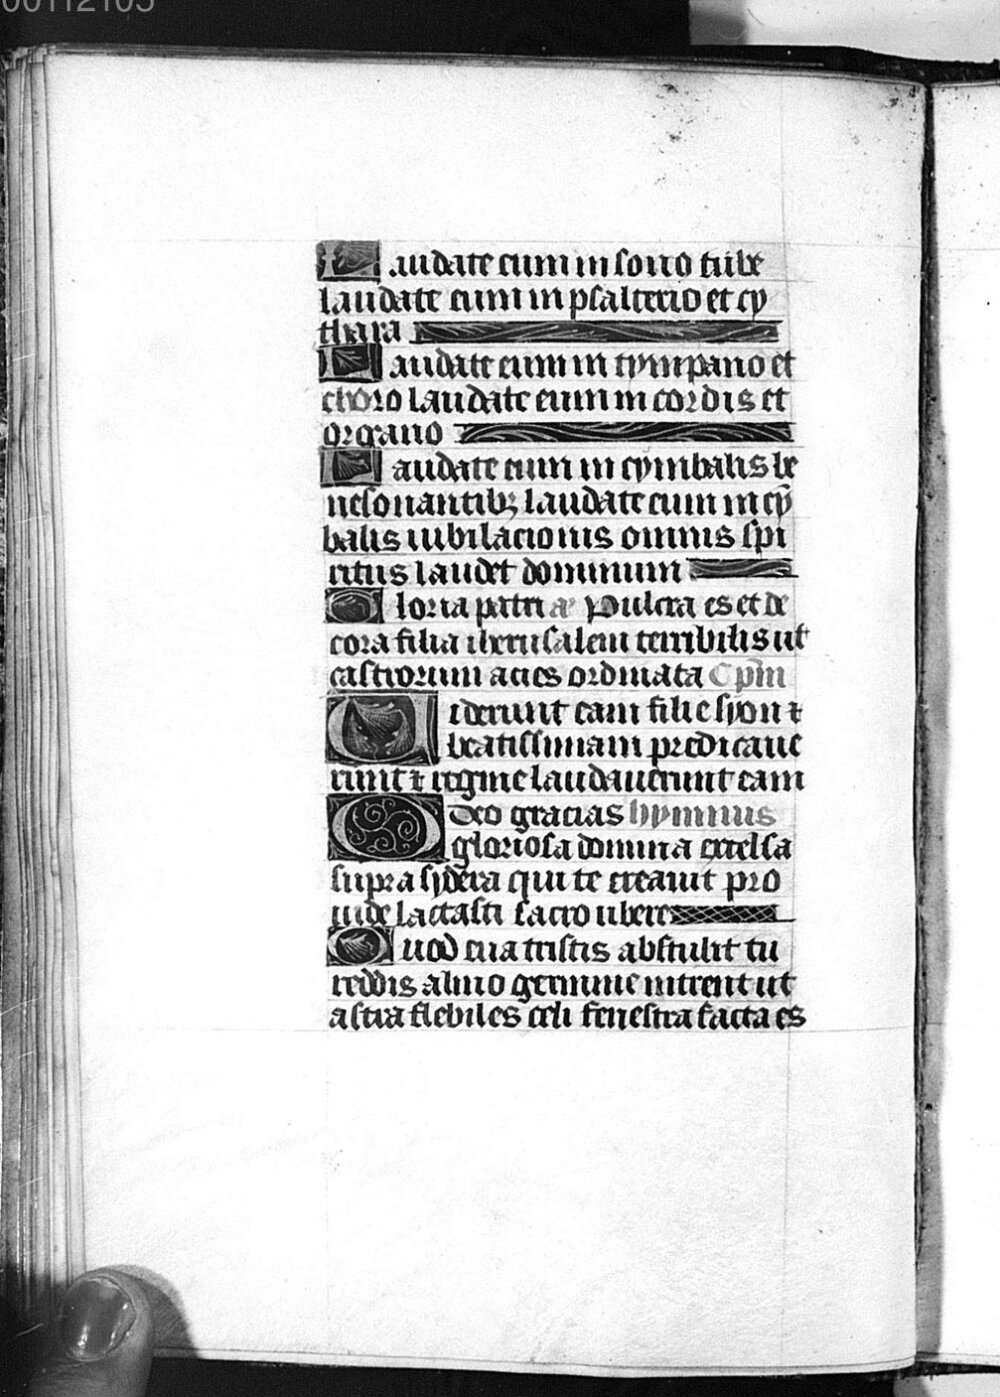 00112105
Laudate eum in sono tube
laudate eum in psalterio et cy
thara
Laudate eum in tympano et
choro laudate eum in cordis et
organo
Laudate eum in cymbalis be
nesonantibꝫ laudate eum in cȳ
balis iubilacionis omnis spi
ritus laudet dominum
Gloria patri Pulcra es et de
cora filia iherusalem terribilis ut
castrorum acies ordinata Cpm̄
Viderunt eam filie syon ⁊
beatissimam predicaue
runt ⁊ regine laudauerunt eam
Deo gracias hymnus
O gloriosa domina excelsa
supra sydera qui te creauit pro
uide lactasti sacro ubere
Quod eua tristis abstulit tu
reddis almo germine intrent ut
astra flebiles celi fenestra facta es